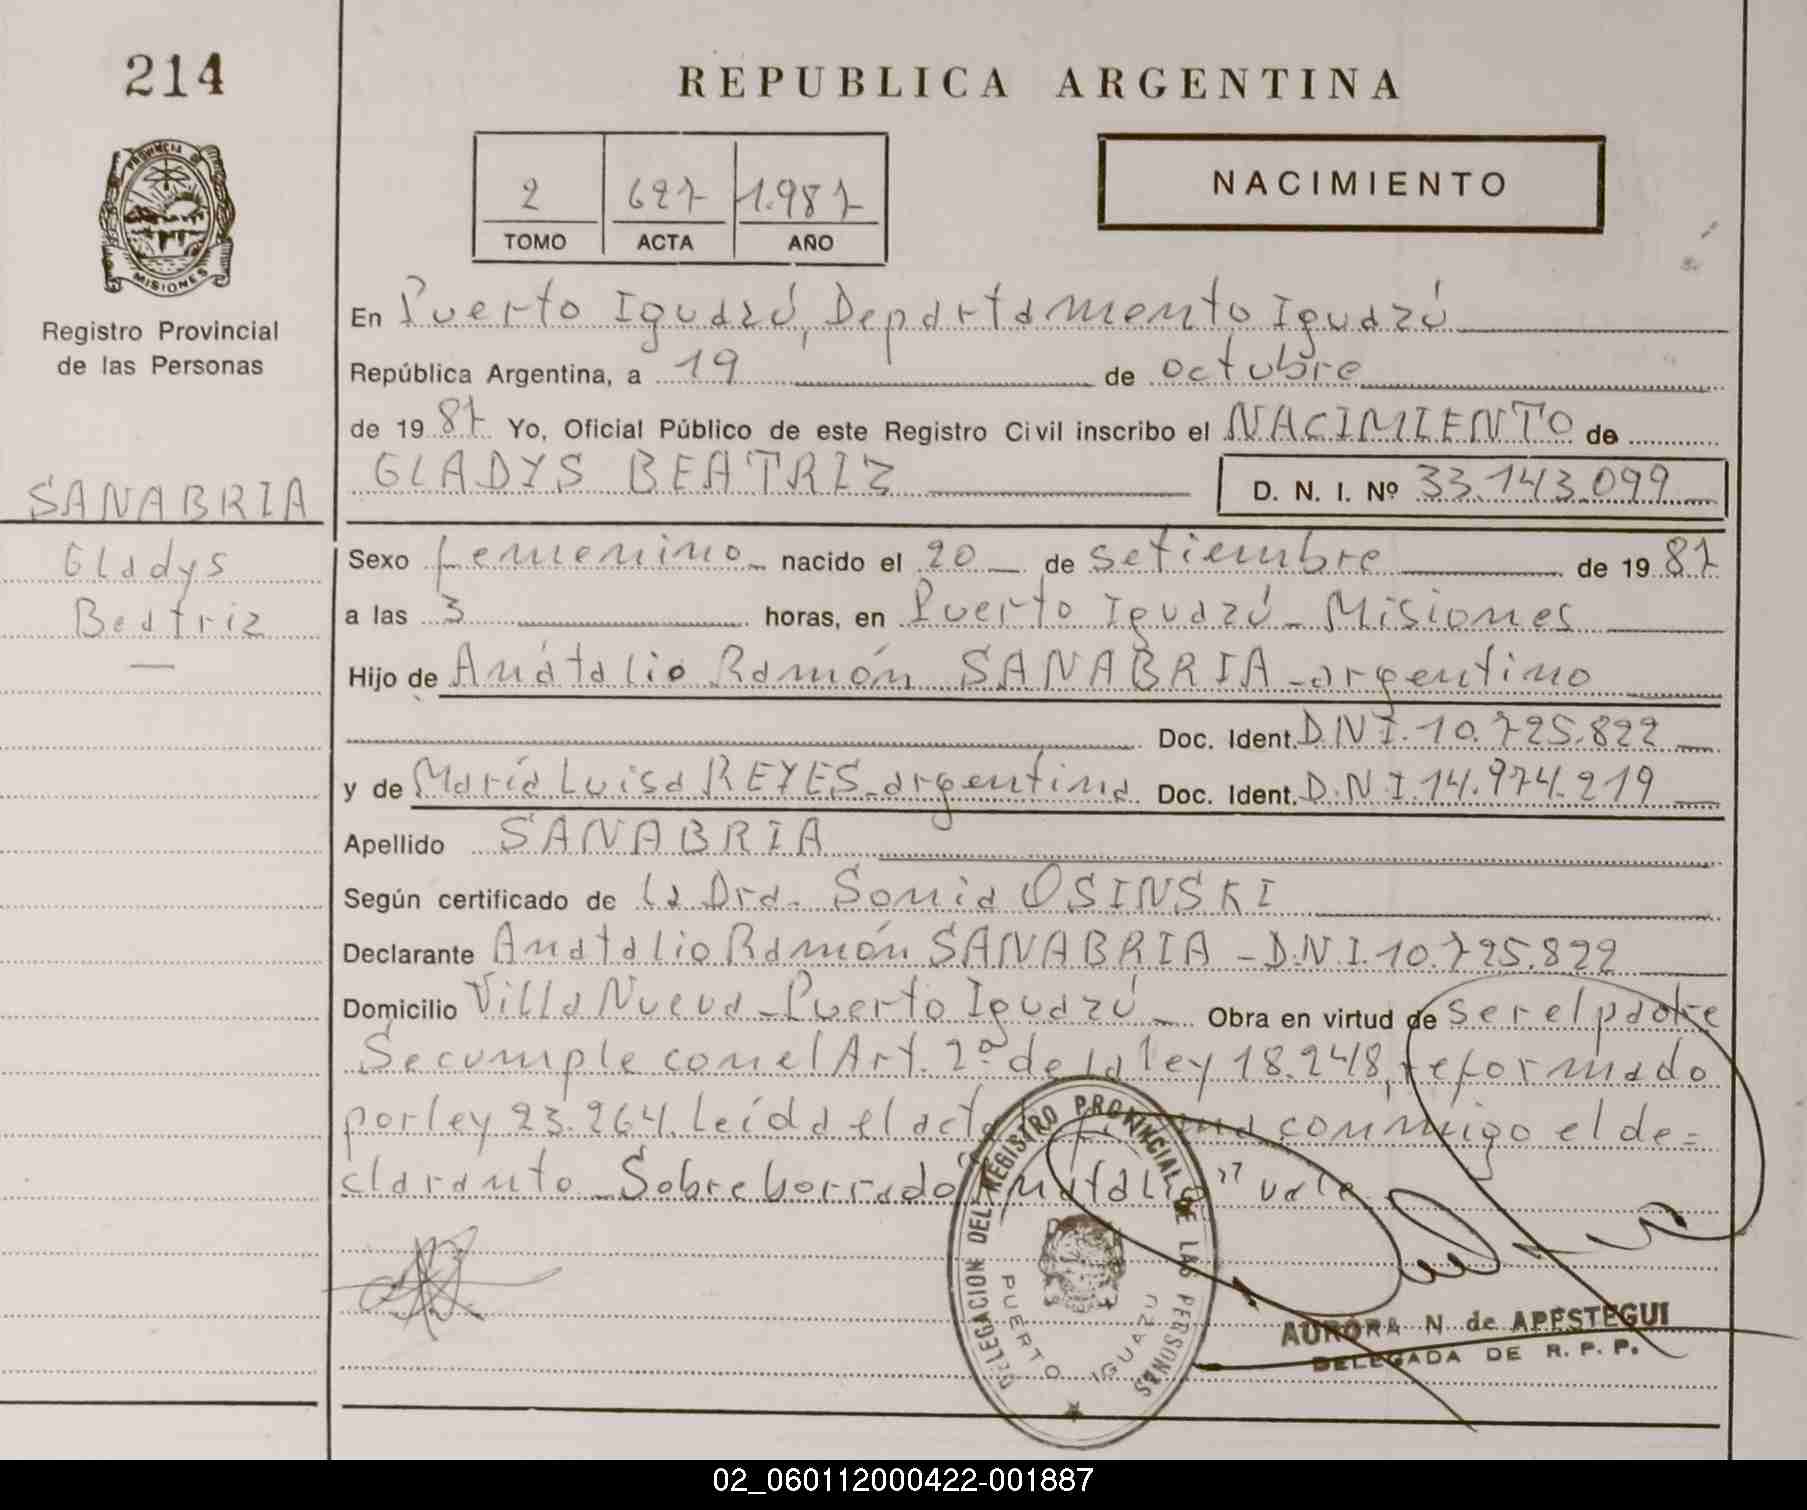 214
REPUBLICA ARGENTINA
PROVINCIA D
MISIONES
Registro Provincial
de las Personas
2 627 1.987
TOMO ACTA AÑO
NACIMIENTO
En Puerto Iguazú, Departamento Iguazú
República Argentina, a 19 de octubre
de 1987 Yo, Oficial Público de este Registro Civil inscribo el NACIMIENTO de
GLADYS BEATRIZ D. N. I. Nº 33.143.099
SANABRIA
Gladys
Beatriz
Sexo femenino nacido el 20 de setiembre de 1987
a las 3 horas, en Puerto Iguazú - Misiones
Hijo de Anátalio Ramón SANABRIA - argentino
Doc. Ident. D.N.I. 10.725.822
y de María Luisa REYES - argentina Doc. Ident. D.N.I. 14.974.219
Apellido SANABRIA
Según certificado de la Dra. Sonia OSINSKI
Declarante Anatalio Ramón SANABRIA - D.N.I. 10.725.822
Domicilio Villa Nueva - Puerto Iguazú - Obra en virtud de ser el padre
Se cumple con el Art. 2º de la ley 18.248, reformado
por ley 23.264. Leída el acta conmigo el de=
clarante - Sobreborrado "Anatalio" vale
DELEGACION DEL REGISTRO PROVINCIAL DE LAS PERSONAS
PUERTO IGUAZU
AURORA N. de APESTEGUI
DELEGADA DE R. P. P.
02_060112000422-001887